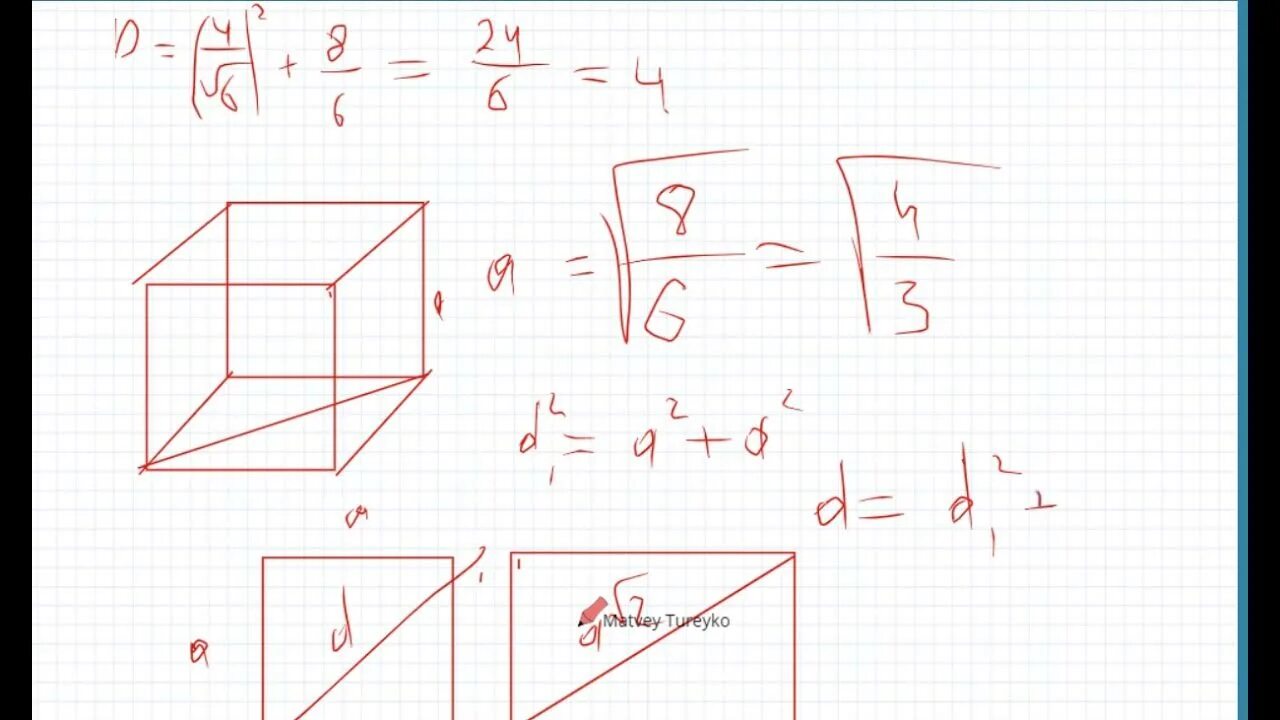 D = (4/√6)² + 8/6 = 24/6 = 4
a = √(8/6) = √(4/3)
a
d₁² = a² + a²
d = d₁² +
a
d
a√2
Matvey Tureyko
a